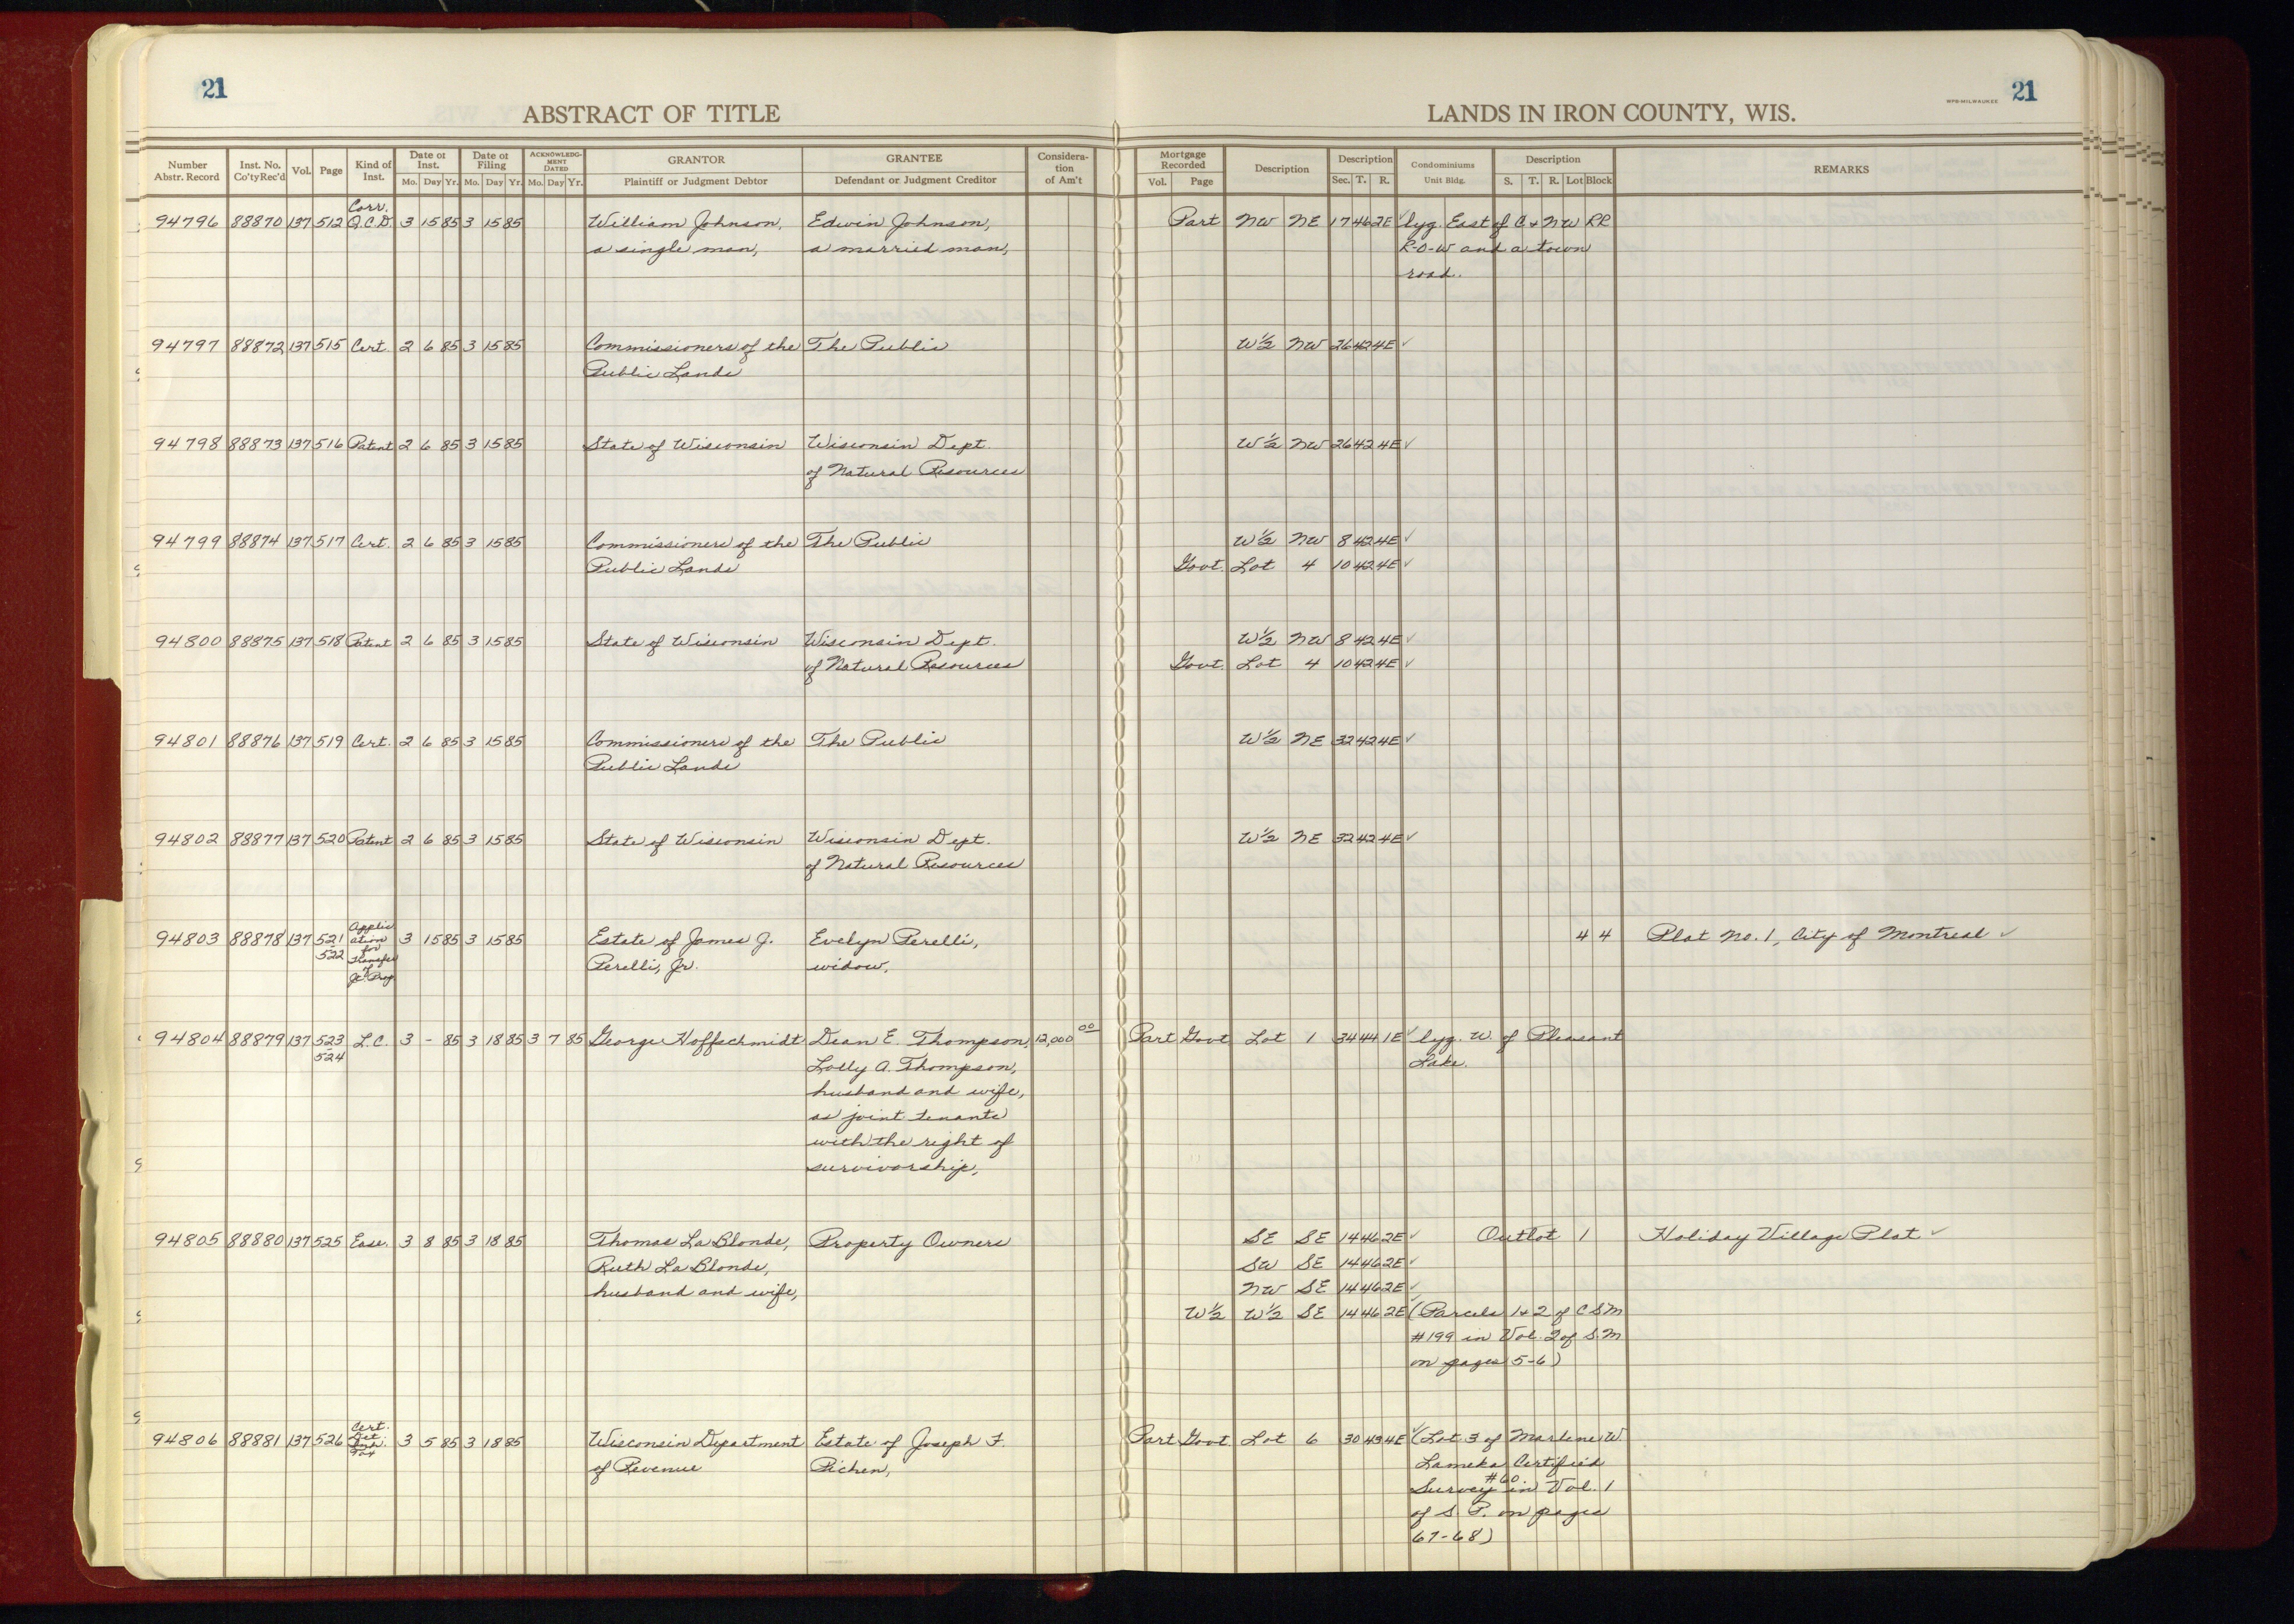 21
21
ABSTRACT OF TITLE
LANDS IN IRON COUNTY, WIS.
WPB-MILWAUKEE
Number Abstr. Record | Inst. No. Co'ty Rec'd | Vol. | Page | Kind of Inst. | Date of Inst. Mo. Day Yr. | Date of Filing Mo. Day Yr. | ACKNOWLEDGMENT DATED Mo. Day Yr. | GRANTOR Plaintiff or Judgment Debtor | GRANTEE Defendant or Judgment Creditor | Consideration of Am't | Mortgage Recorded Vol. Page | Description | Description Sec. T. R. | Condominiums Unit Bldg. | Description S. T. R. Lot Block | REMARKS
94796 88870 137 512 Corr. Q.C.D. 3 15 85 3 15 85 William Johnson, Edwin Johnson, Part NW NE 17 46 2E ✓ lyg. East of C + NW RR
a single man, a married man, R-O-W and a town
road.
94797 88872 137 515 Cert. 2 6 85 3 15 85 Commissioners of the The Public W½ NW 26 42 4E ✓
Public Lands
94798 88873 137 516 Patent 2 6 85 3 15 85 State of Wisconsin Wisconsin Dept. W½ NW 26 42 4E ✓
of Natural Resources
94799 88874 137 517 Cert. 2 6 85 3 15 85 Commissioners of the The Public W½ NW 8 42 4E ✓
Public Lands Govt. Lot 4 10 42 4E ✓
94800 88875 137 518 Patent 2 6 85 3 15 85 State of Wisconsin Wisconsin Dept. W½ NW 8 42 4E ✓
of Natural Resources Govt. Lot 4 10 42 4E ✓
94801 88876 137 519 Cert. 2 6 85 3 15 85 Commissioners of the The Public W½ NE 32 42 4E ✓
Public Lands
94802 88877 137 520 Patent 2 6 85 3 15 85 State of Wisconsin Wisconsin Dept. W½ NE 32 42 4E ✓
of Natural Resources
94803 88878 137 521-522 Application for Transfer of Jt. Prop. 3 15 85 3 15 85 Estate of James J. Evelyn Perelli, 4 4 Plat No. 1, City of Montreal ✓
Perelli, Jr. widow,
94804 88879 137 523-524 L.C. 3 - 85 3 18 85 3 7 85 George Hoffschmidt Dean E. Thompson, 12,000 00 Part Govt Lot 1 34 44 1E ✓ lyg. W. of Pleasant
Lolly A. Thompson, Lake.
husband and wife,
as joint tenants
with the right of
survivorship,
94805 88880 137 525 Ease. 3 8 85 3 18 85 Thomas La Blonde, Property Owners SE SE 14 46 2E ✓ Outlot 1 Holiday Village Plat ✓
Ruth La Blonde, SW SE 14 46 2E ✓
husband and wife, NW SE 14 46 2E ✓
W½ W½ SE 14 46 2E (Parcels 1+2 of CSM
#199 in Vol. 2 of S.M
on pages 5-6)
94806 88881 137 526 Cert. Det. Inh. Tax 3 5 85 3 18 85 Wisconsin Department Estate of Joseph F. Part Govt Lot 6 30 43 4E ✓ (Lot 3 of Marlene W.
of Revenue Pichen, Lameka Certified
Survey #60 in Vol. 1
of S. P. on pages
67-68)